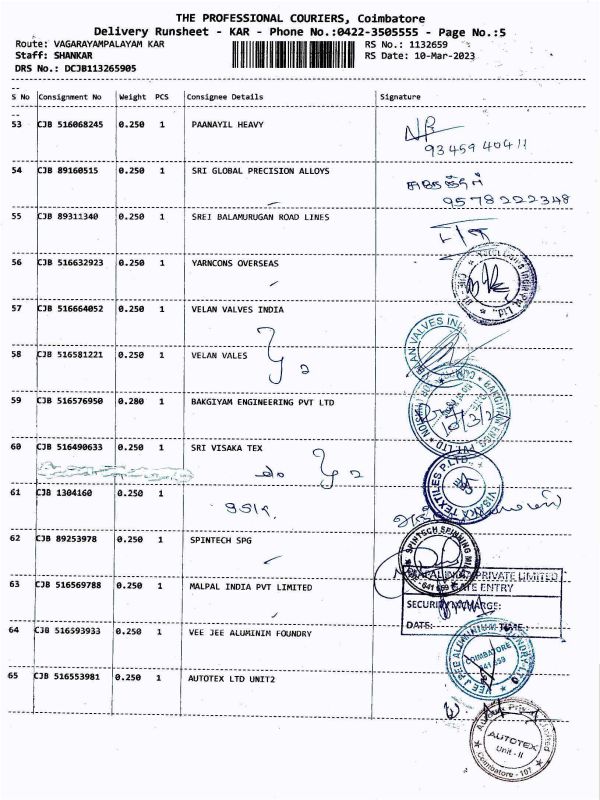 THE PROFESSIONAL COURIERS, Coimbatore
Delivery Runsheet - KAR - Phone No.:0422-3505555 - Page No.:5
Route: VAGARAYAMPALAYAM KAR RS No.: 1132659
Staff: SHANKAR RS Date: 10-Mar-2023
DRS No.: DCJB113265905
S No Consignment No Weight PCS Consignee Details Signature
53 CJB 516068245 0.250 1 PAANAYIL HEAVY
93459 40411
54 CJB 89160515 0.250 1 SRI GLOBAL PRECISION ALLOYS
9578222348
55 CJB 89311340 0.250 1 SREI BALAMURUGAN ROAD LINES
56 CJB 516632923 0.250 1 YARNCONS OVERSEAS
57 CJB 516664052 0.250 1 VELAN VALVES INDIA
VELAN VALVES
58 CJB 516581221 0.250 1 VELAN VALES
59 CJB 516576950 0.280 1 BAKGIYAM ENGINEERING PVT LTD
60 CJB 516490633 0.250 1 SRI VISAKA TEX
VISAKA TEXTILES P.LTD. CBE
61 CJB 1304160 0.250 1
62 CJB 89253978 0.250 1 SPINTECH SPG
SPINTECH SPINNING
63 CJB 516569788 0.250 1 MALPAL INDIA PVT LIMITED
PRIVATE LIMITED
GATE ENTRY
SECURITY INCHARGE:
DATE: TIME:
64 CJB 516593933 0.250 1 VEE JEE ALUMINIM FOUNDRY
VEE JEE ALUMINIUM FOUNDRY
COIMBATORE
641 659
65 CJB 516553981 0.250 1 AUTOTEX LTD UNIT2
AUTOTEX
Unit - II
Coimbatore - 107